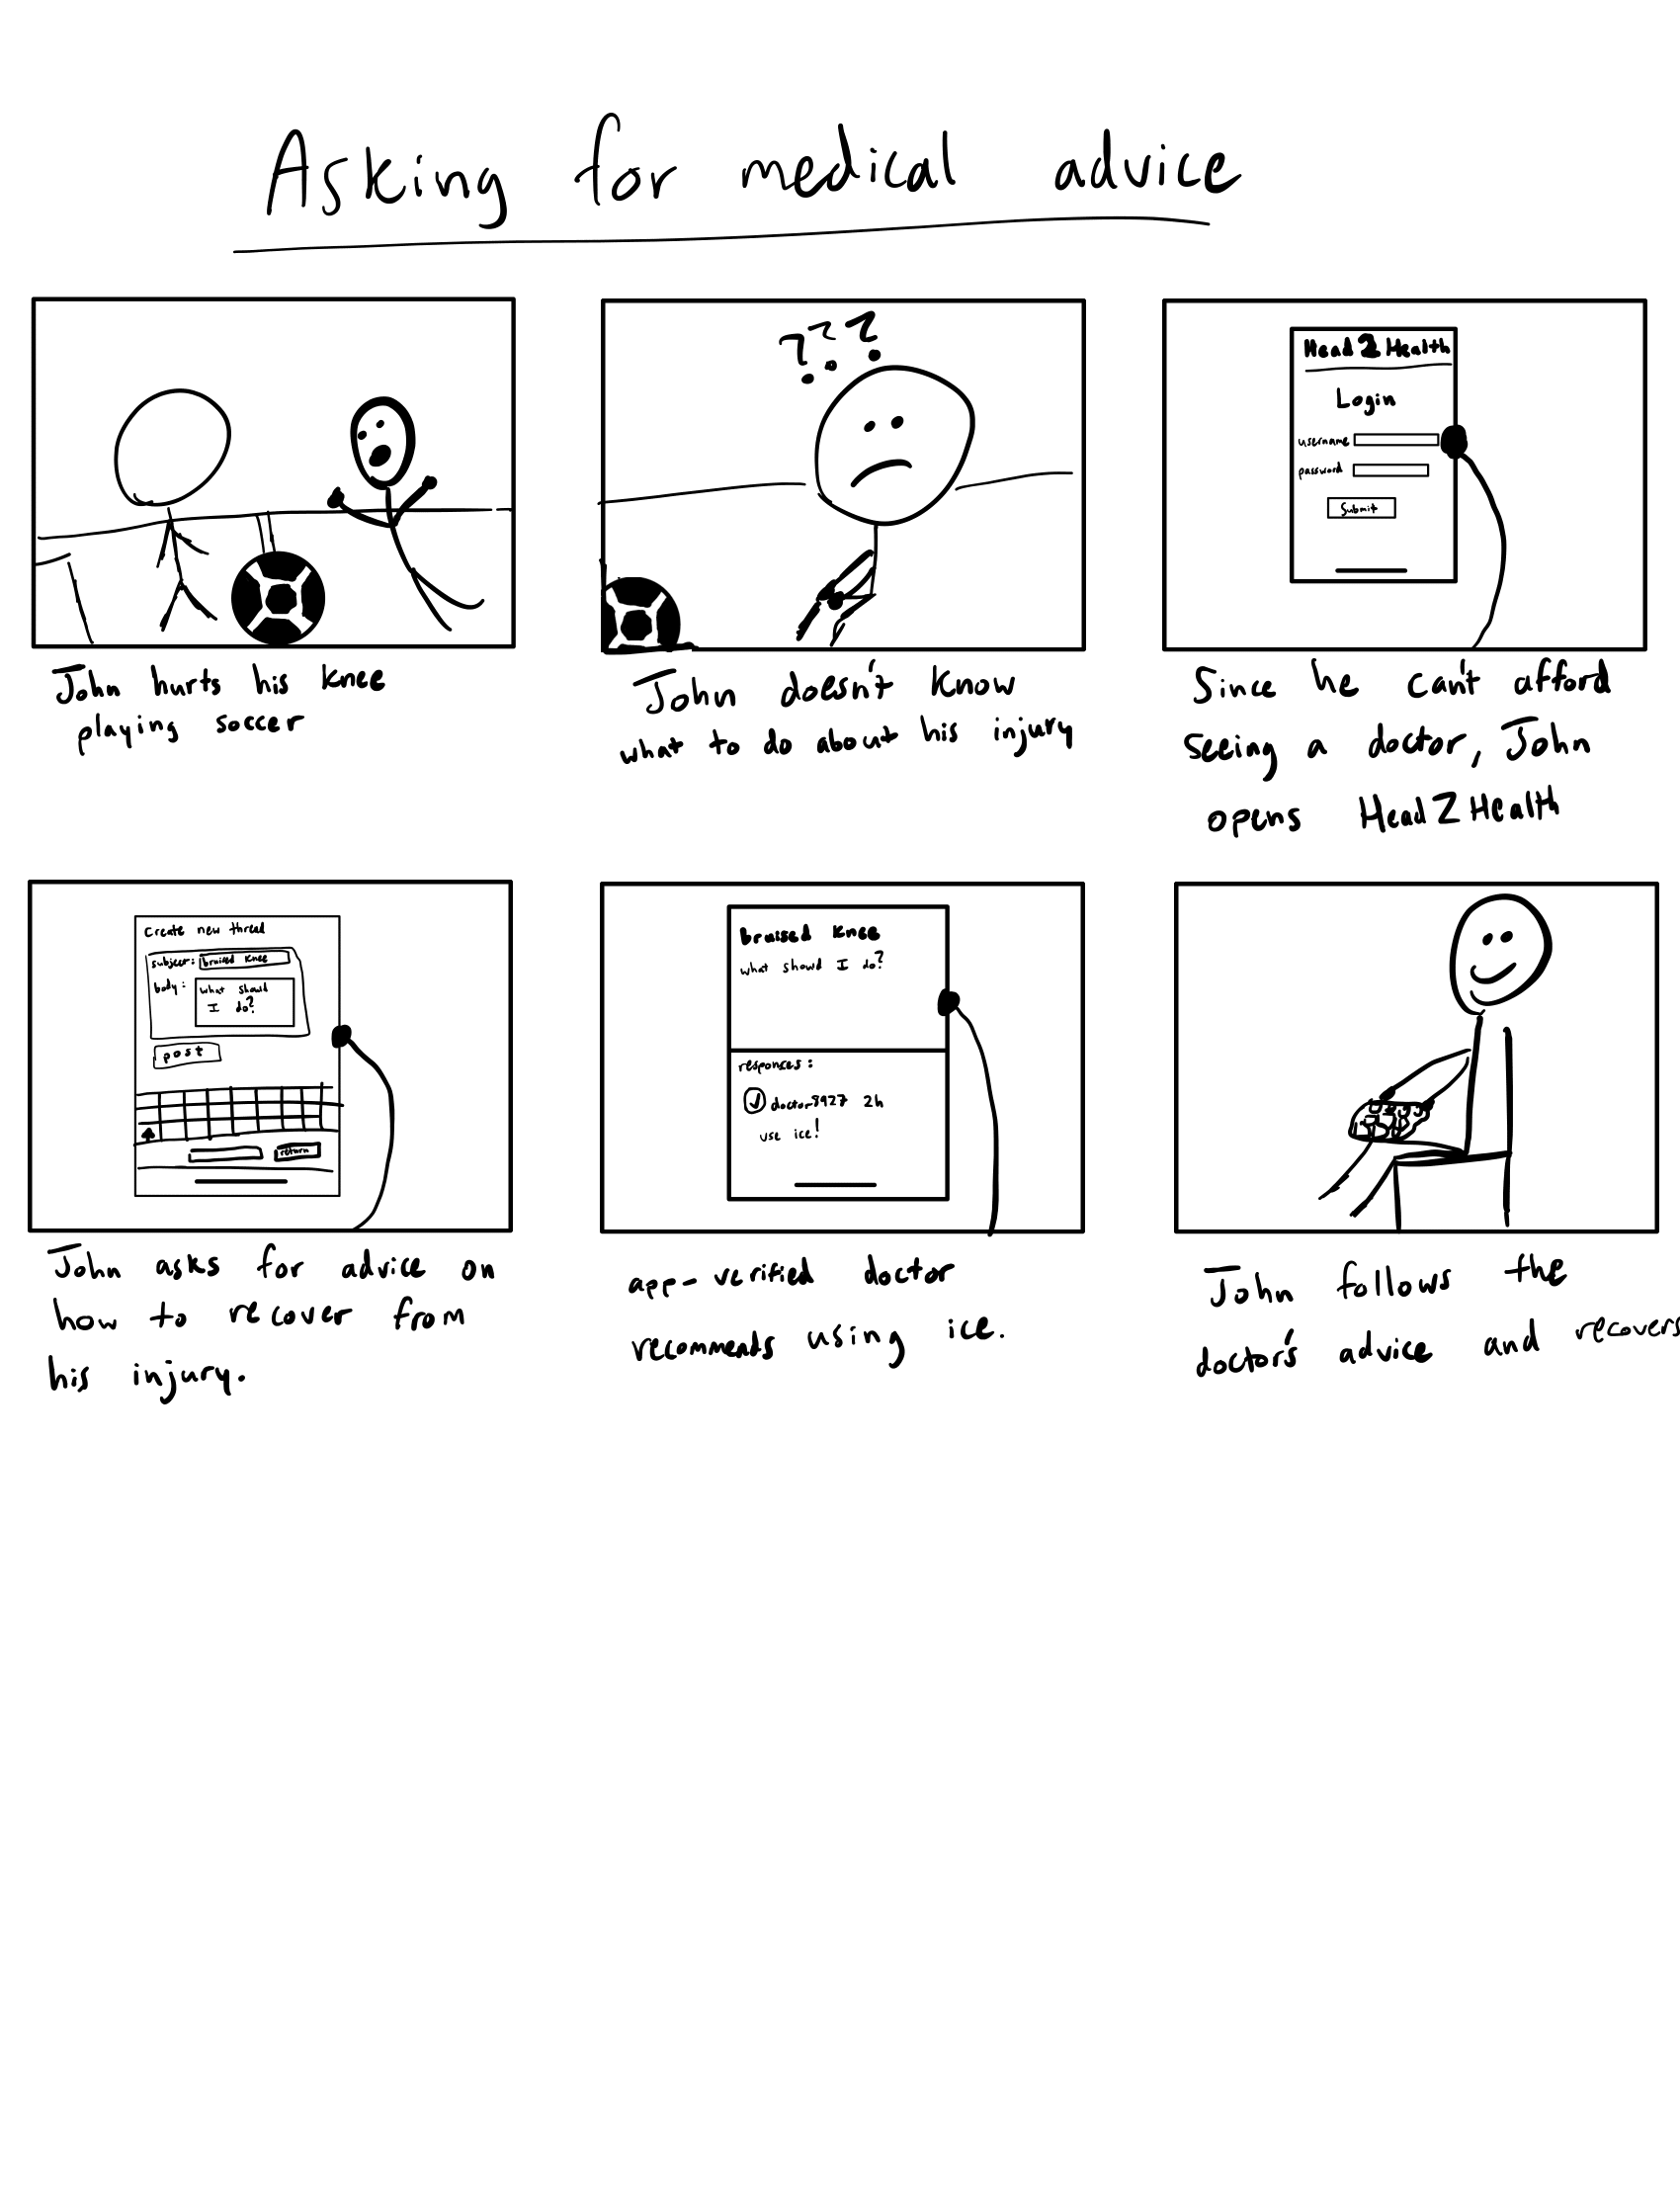 Asking for medical advice
???
John hurts his knee
playing soccer
John doesn't know
what to do about his injury
Head 2 Health
Login
username
password
Submit
Since he can't afford
seeing a doctor, John
opens Head2Health
Create new thread
subject: bruised knee
body: what should
I do?
post
return
John asks for advice on
how to recover from
his injury.
bruised knee
what should I do?
responses:
doctor8927 2h
use ice!
app-verified doctor
recommends using ice.
John follows the
doctor's advice and recovers